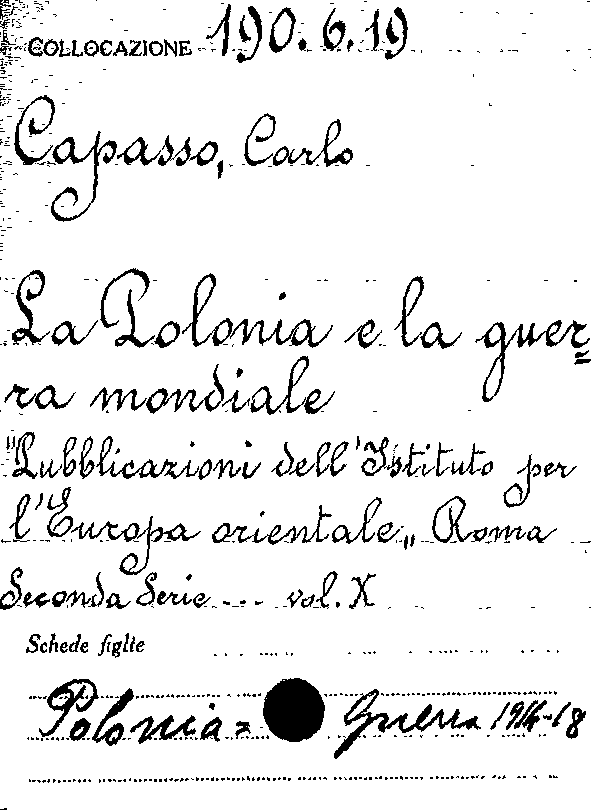 COLLOCAZIONE 190.6.19
Capasso, Carlo
La Polonia e la guer=
ra mondiale
"Pubblicazioni dell'Istituto per
l'Europa orientale„ Roma
Seconda Serie ... vol. X
Schede figlie
Polonia = Guerra 1914-18